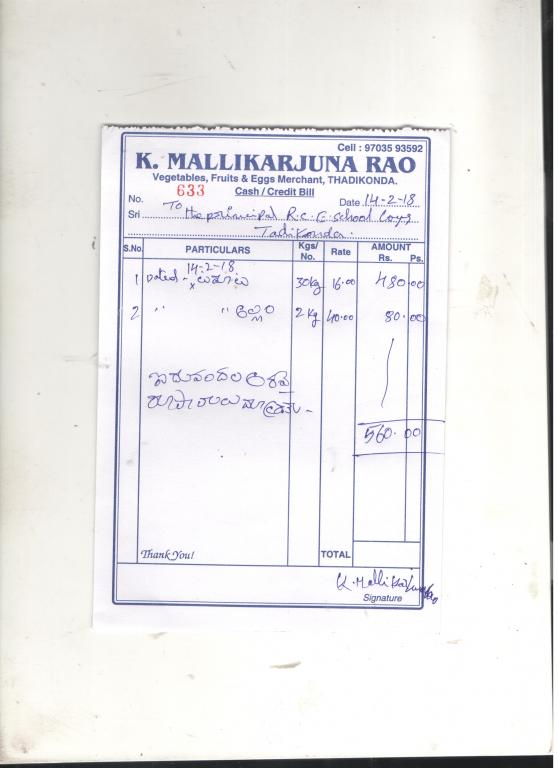 Cell : 97035 93592
K. MALLIKARJUNA RAO
Vegetables, Fruits & Eggs Merchant, THADIKONDA.
633 Cash / Credit Bill
No. Date 14-2-18
Sri To the principal R.C.E. school
Tadikonda.
S.No. PARTICULARS Kgs/ No. Rate AMOUNT Rs. Ps.
14-2-18
1 Dated - 30kg 16.00 480.00
2 " " అల్లం 2 kg 40.00 80.00
ఐదువందల అరవై
రూపాయలు మాత్రమే -
560.00
Thank You! TOTAL
K. Mallikarjuna Rao
Signature